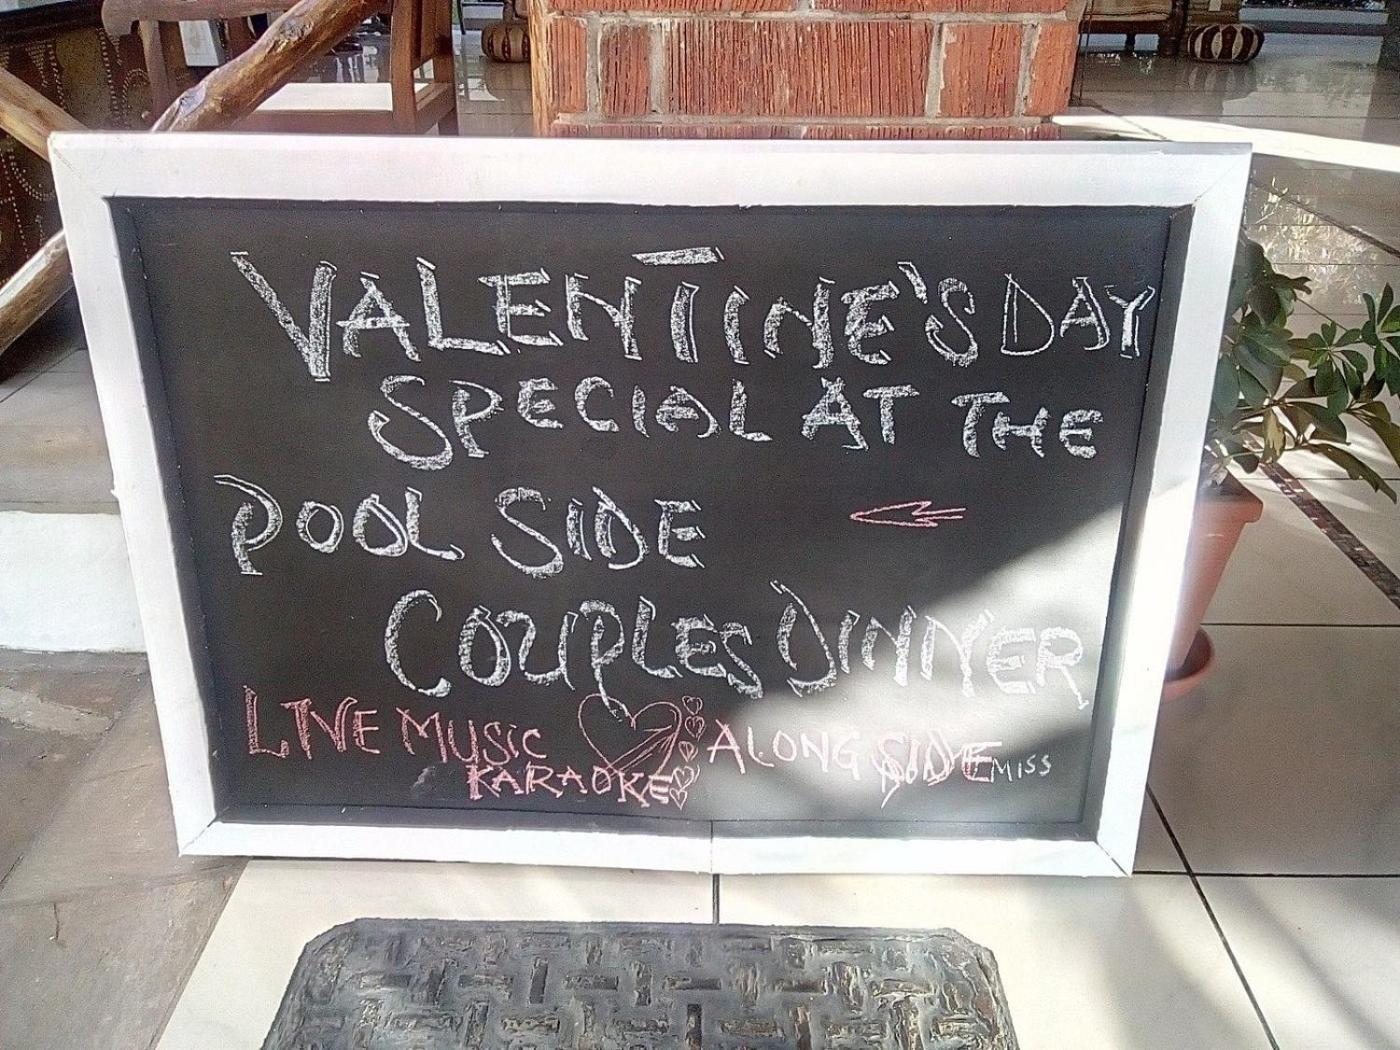 VALENTINE'S DAY
SPECIAL AT THE
POOL SIDE
COUPLES DINNER
LIVE MUSIC ALONG SIDE
KARAOKE MISS